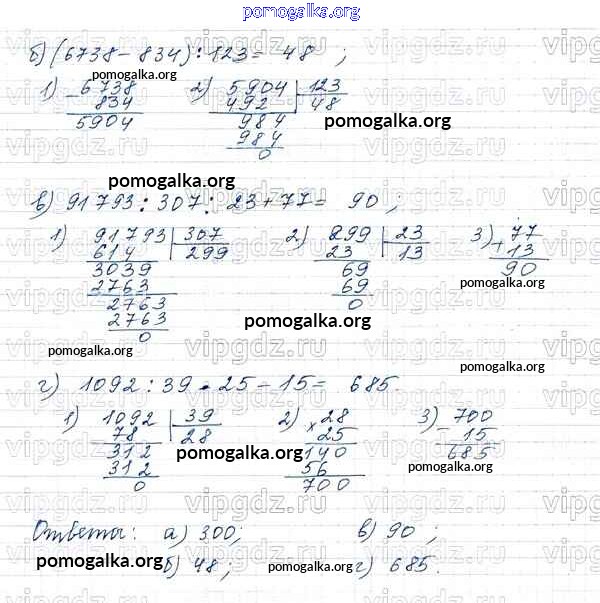 pomogalka.org
б) (6738 - 834) : 123 = 48 ;
pomogalka.org
1) - 6738
834
5904
2) 5904 | 123
492 | 48
984
984
0
pomogalka.org
pomogalka.org
в) 91793 : 307 : 23 + 77 = 90 ;
1) 91793 | 307
614 | 299
3039
2763
2763
2763
0
2) 299 | 23
23 | 13
69
69
0
3) + 77
13
90
pomogalka.org
pomogalka.org
г) 1092 : 39 · 25 - 15 = 685.
1) 1092 | 39
78 | 28
312
312
0
2) × 28
25
140
56
700
3) - 700
15
685
pomogalka.org
pomogalka.org
pomogalka.org
Ответы: а) 300; в) 90 ;
pomogalka.org б) 48 ; pomogalka.org г) 685.
vipgdz.ru